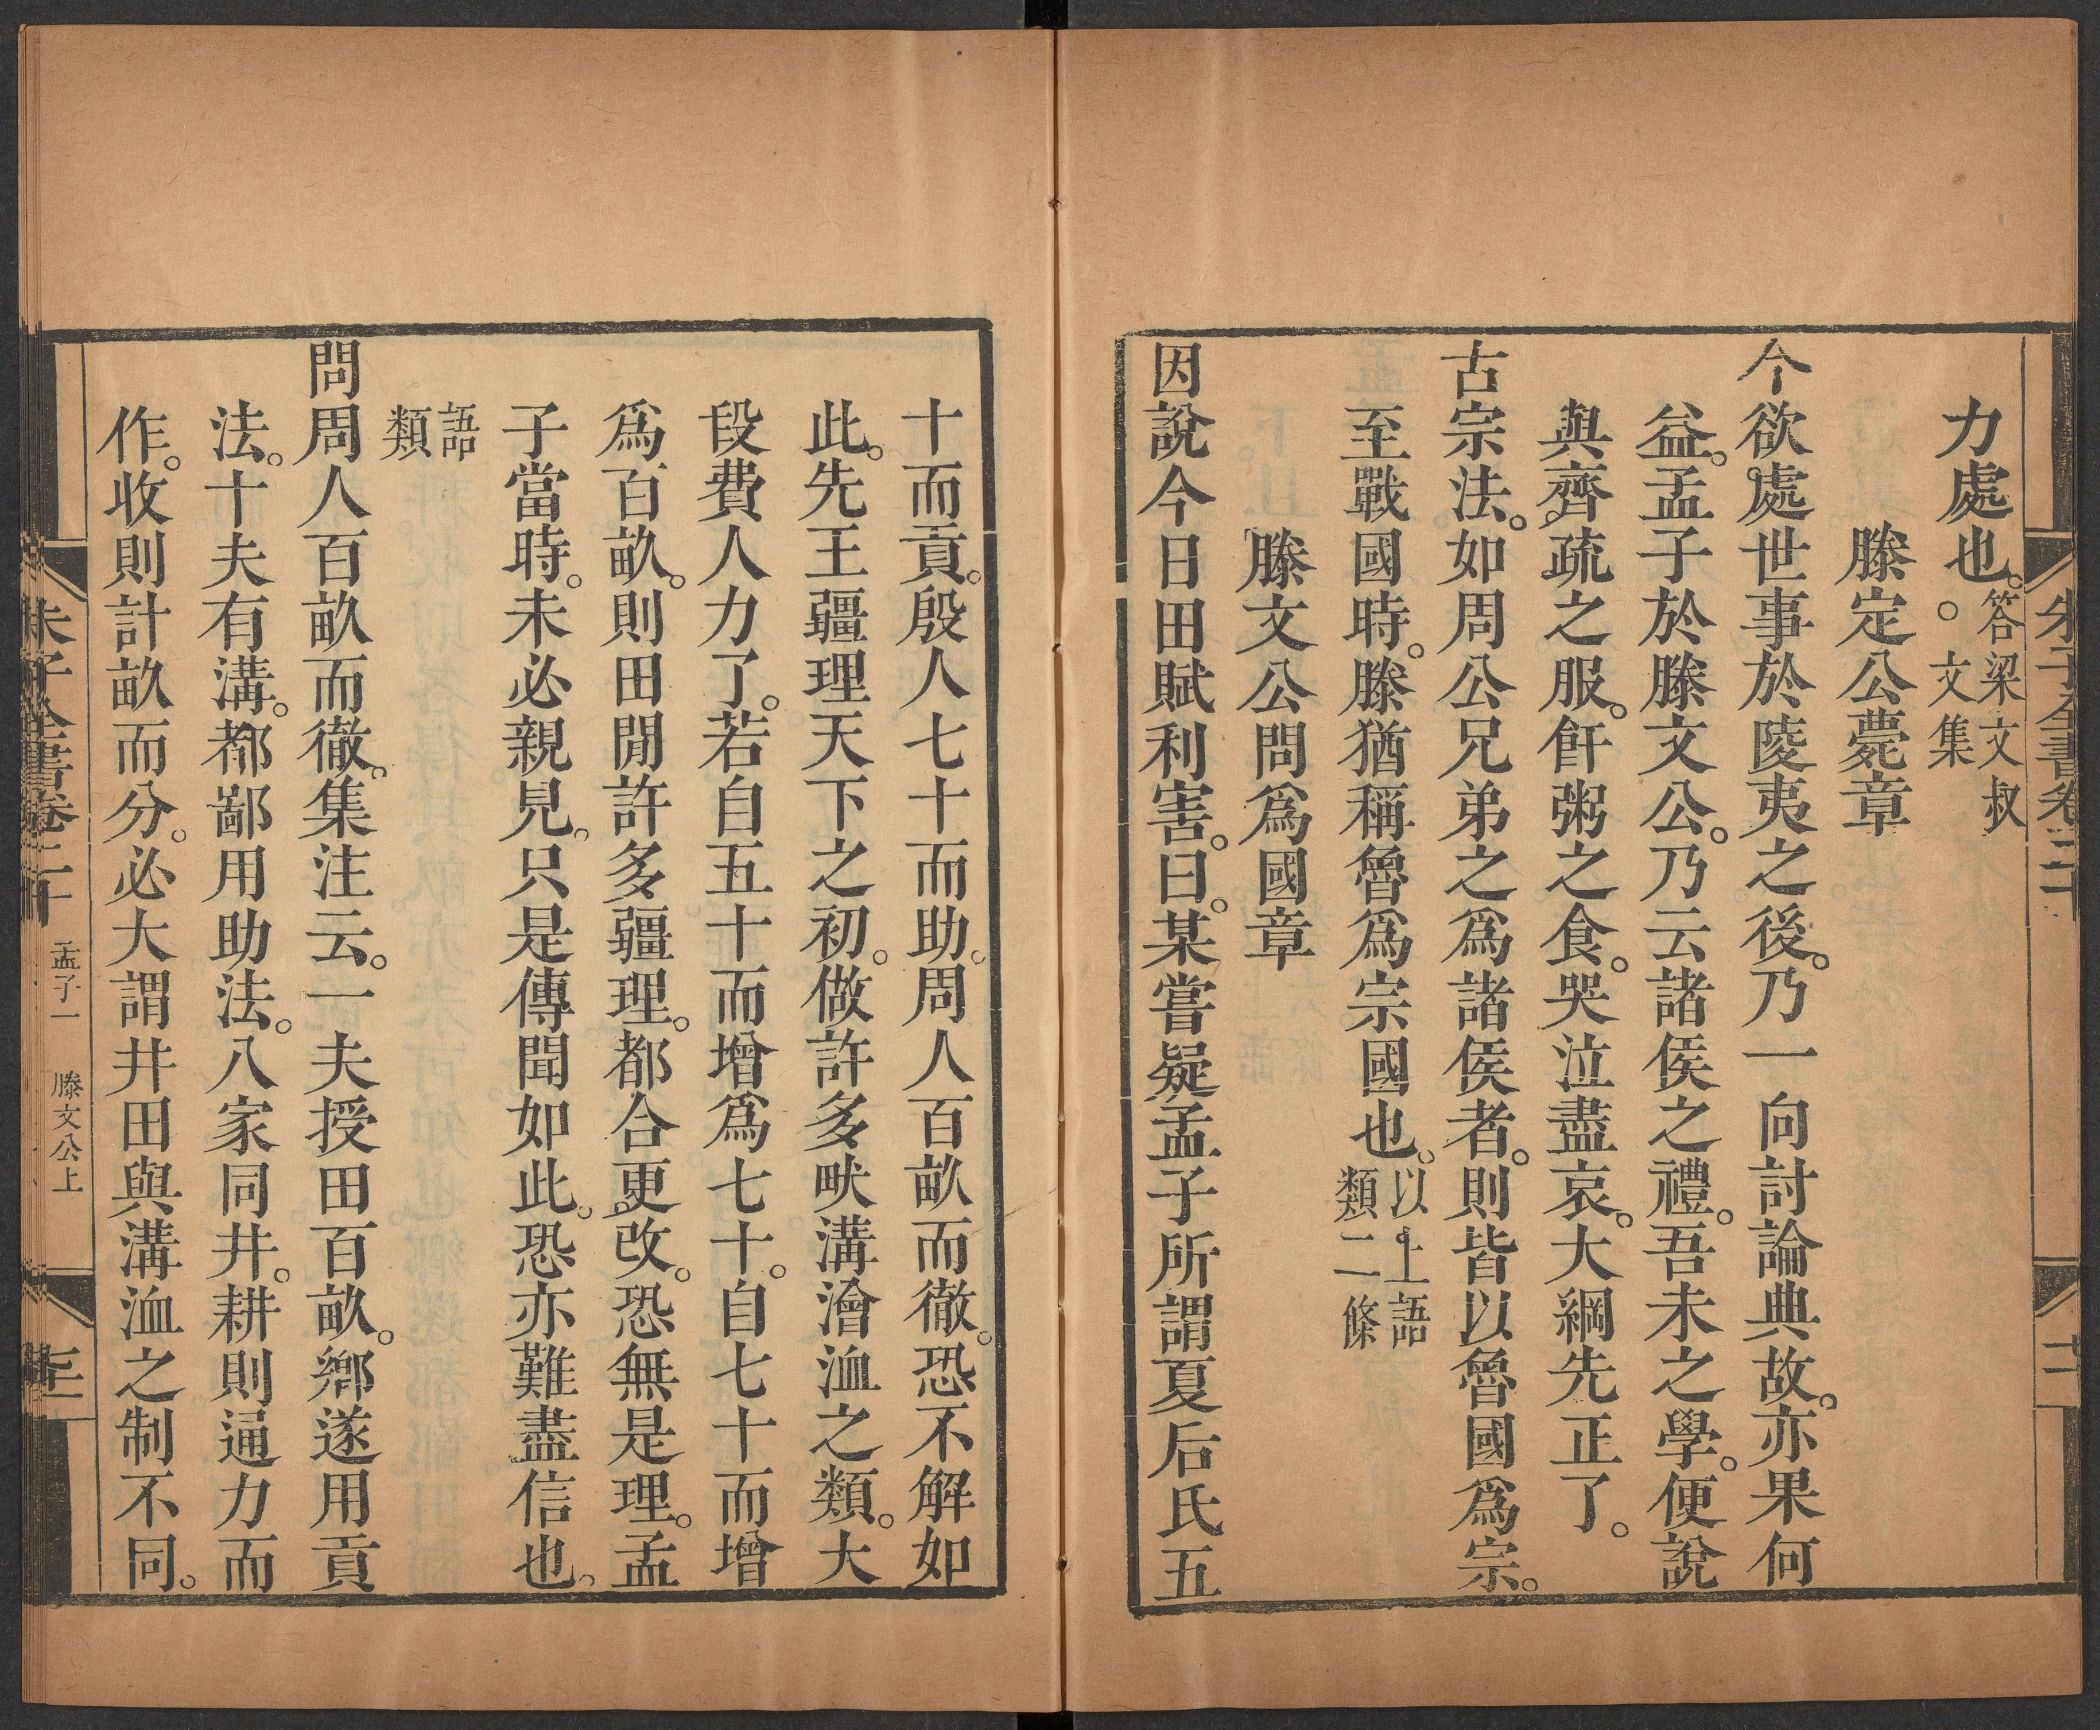 力處也。答梁文叔。文集
滕定公薨章
今欲處世事於陵夷之後。乃一向討論典故。亦果何
益。孟子於滕文公。乃云諸侯之禮。吾未之學。便說
與齊疏之服。飦粥之食。哭泣盡哀。大綱先正了。
古宗法。如周公兄弟之爲諸侯者。則皆以魯國爲宗。
至戰國時。滕猶稱魯爲宗國也。以上語類二條
滕文公問爲國章
因說今日田賦利害。曰。某嘗疑孟子所謂夏后氏五
十而貢。殷人七十而助。周人百畝而徹。恐不解如
此。先王疆理天下之初。做許多畎溝澮洫之類。大
段費人力了。若自五十而增爲七十。自七十而增
爲百畝。則田閒許多疆理。都合更改。恐無是理。孟
子當時。未必親見。只是傳聞如此。恐亦難盡信也。
語類
問周人百畝而徹。集注云。一夫授田百畝。鄉遂用貢
法。十夫有溝。都鄙用助法。八家同井。耕則通力而
作。收則計畝而分。必大謂井田與溝洫之制不同。
朱子全書卷二十 孟子一 滕文公上